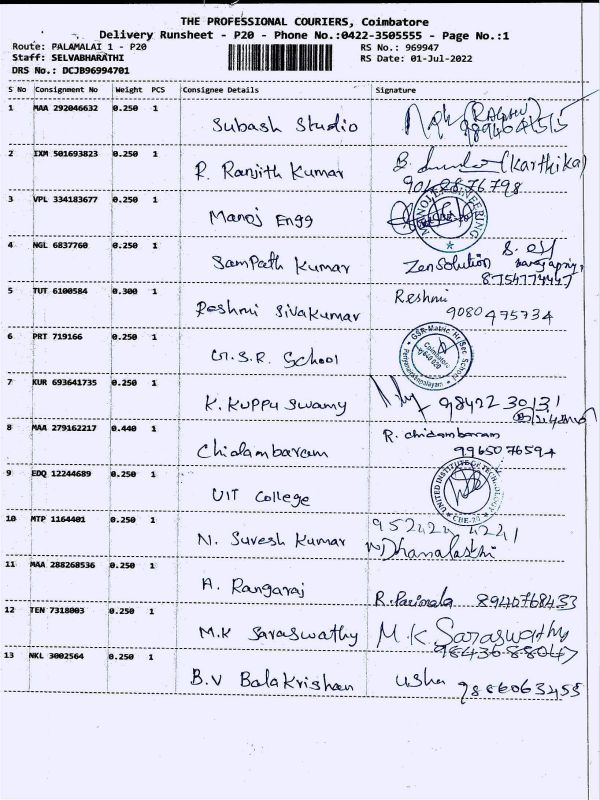 THE PROFESSIONAL COURIERS, Coimbatore
Delivery Runsheet - P20 - Phone No.:0422-3505555 - Page No.:1
Route: PALAMALAI 1 - P20 RS No.: 969947
Staff: SELVABHARATHI RS Date: 01-Jul-2022
DRS No.: DCJB96994701
S No Consignment No Weight PCS Consignee Details Signature
1 MAA 292046632 0.250 1
Subash Studio (RAGHU)
2 IXM 501693823 0.250 1
R. Ranjith Kumar (Karthika)
9042876798
3 VPL 334183677 0.250 1
Manoj Engg
4 NGL 6837760 0.250 1
Sampath Kumar Zen Solution
8754774447
5 TUT 6100584 0.300 1 Reshmi
Reshmi Sivakumar 9080475734
6 PRT 719166 0.250 1
G.S.R. School
7 KUR 693641735 0.250 1
K. Kuppuswamy 9842230131
8 MAA 279162217 0.440 1 R. chidambaram
Chidambaram 9965076594
9 EDQ 12244689 0.250 1
UIT College UNITED INSTITUTE OF TECHNOLOGY
10 MTP 1164401 0.250 1
N. Suresh Kumar
11 MAA 288268536 0.250 1
A. Rangaraj R. Parimala 8940768433
12 TEN 7318003 0.250 1
M.K Saraswathy M.K. Saraswathy
13 NKL 3002564 0.250 1
B.V Balakrishan Usha